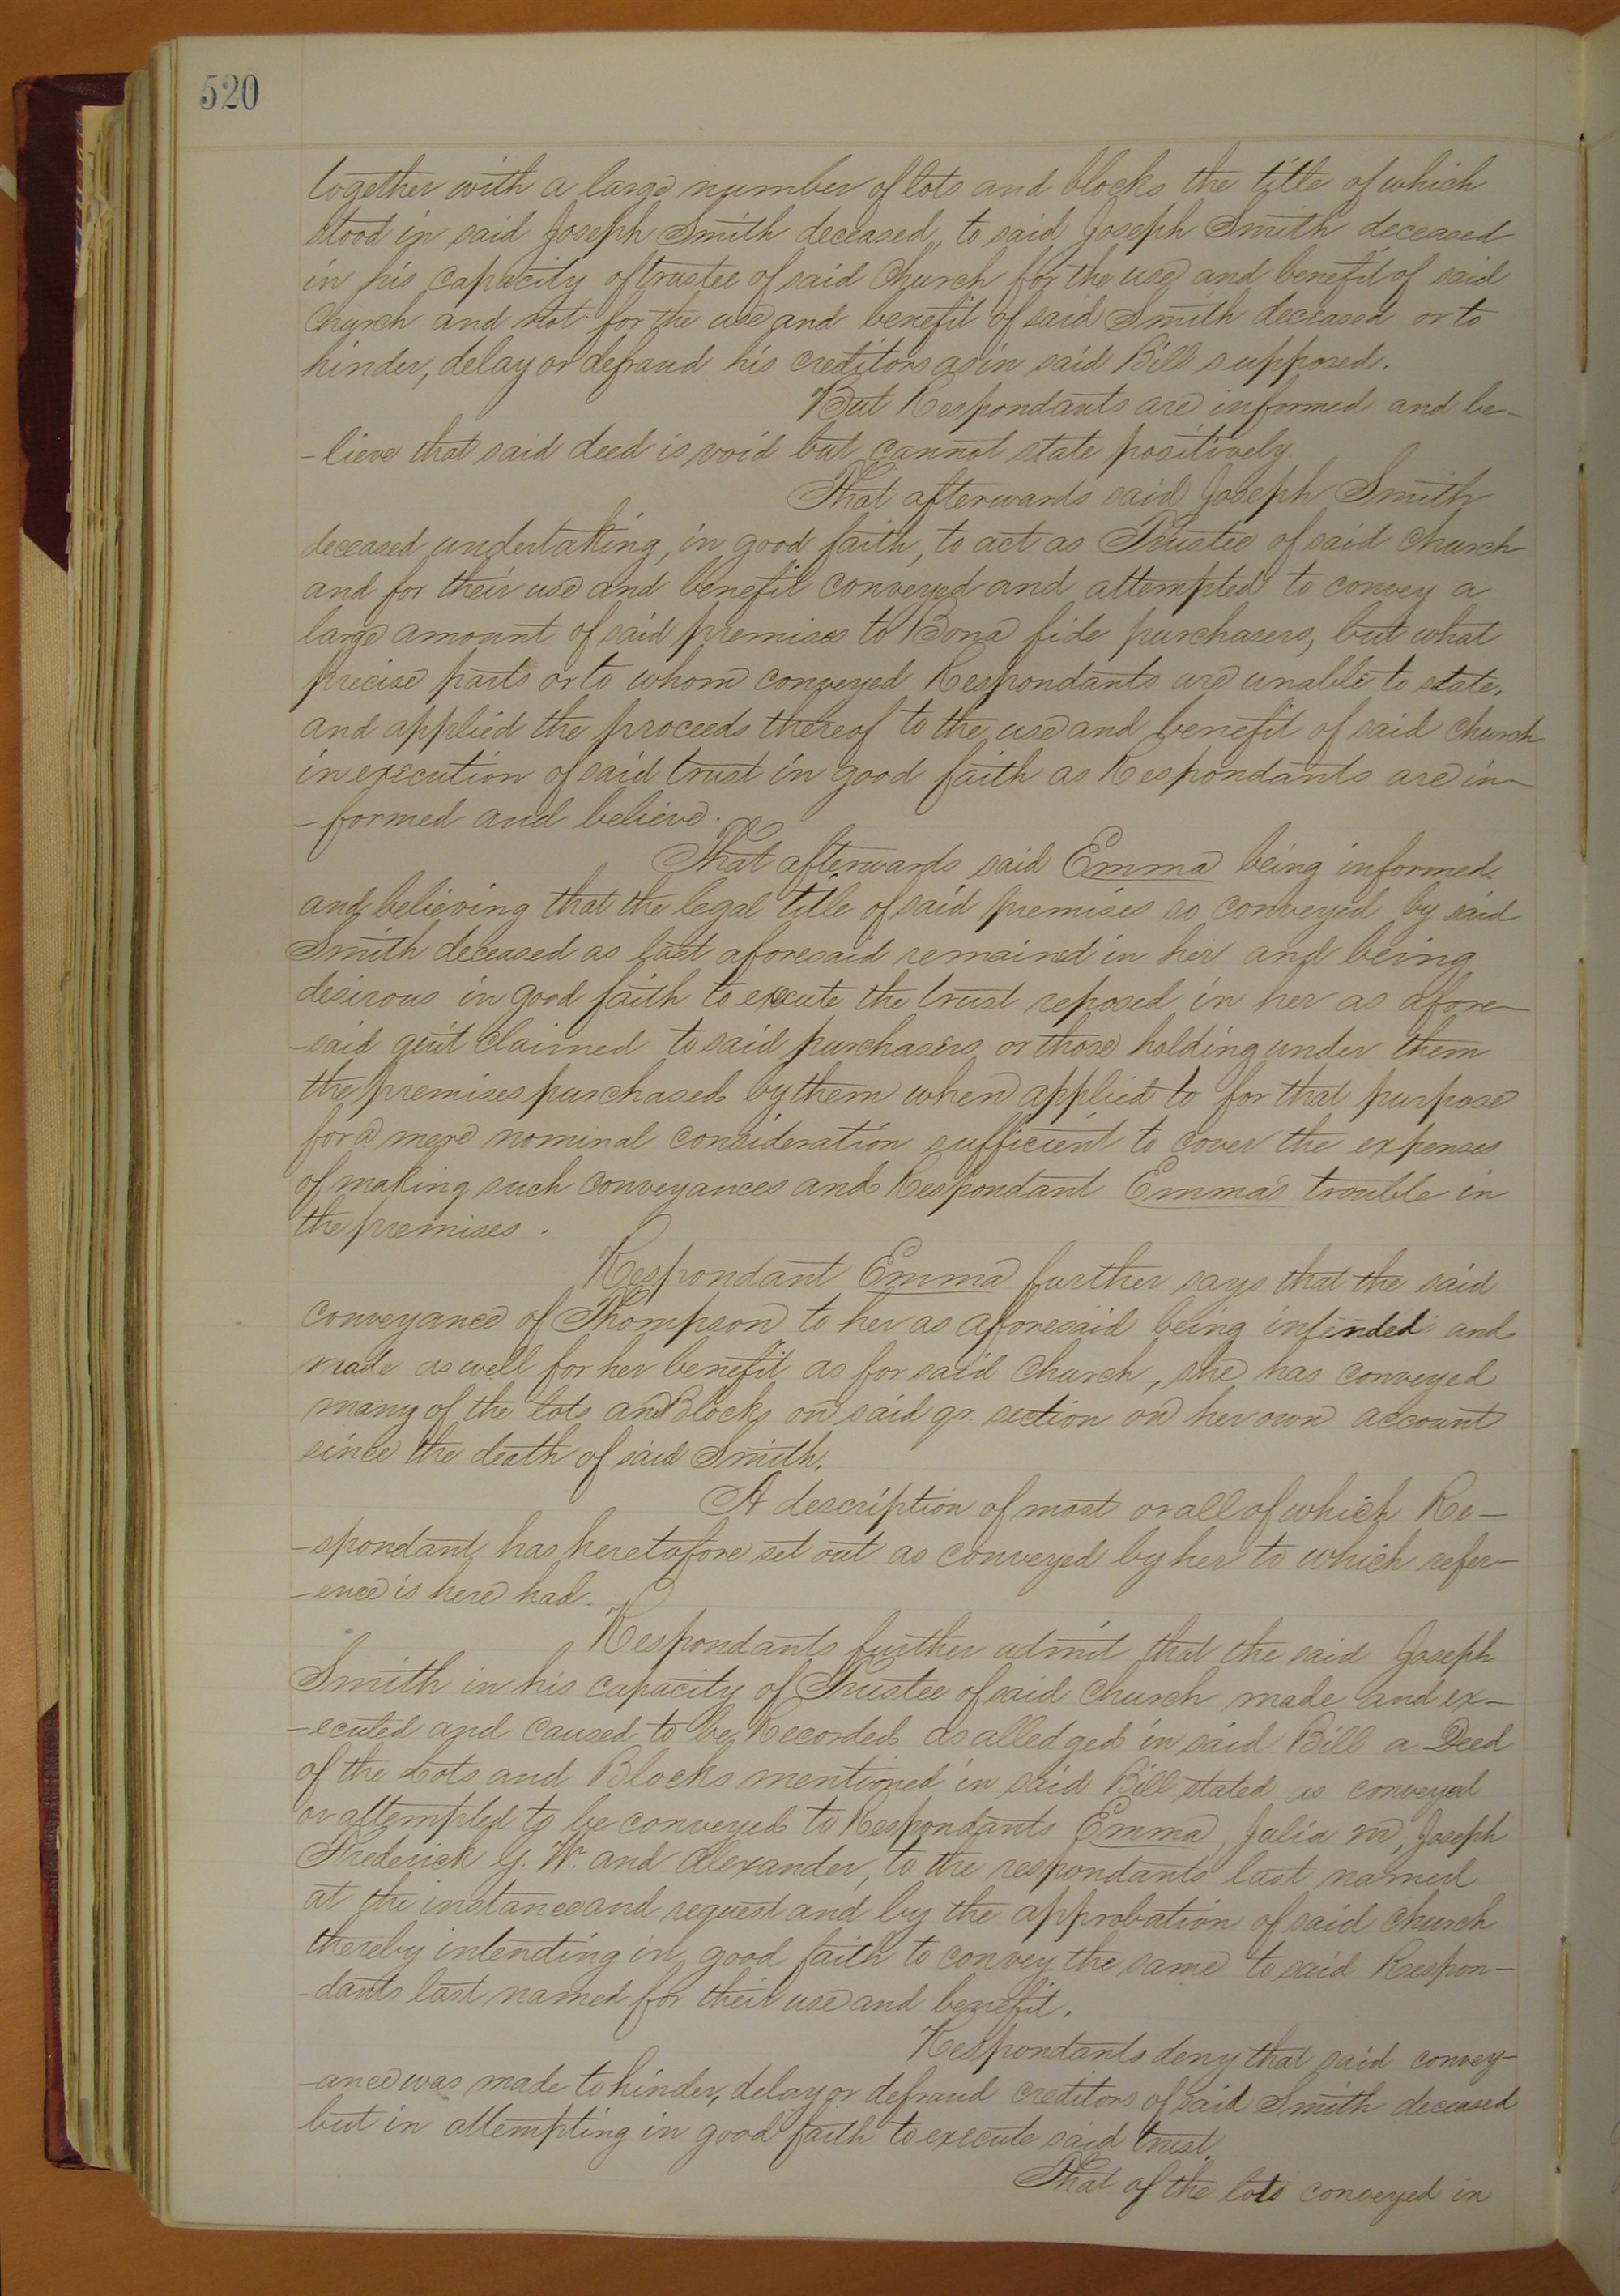 520
together with a large number of lots and blocks the title of which
stood in said Joseph Smith deceased, to said Joseph Smith deceased
in his capacity of trustee of said Church for the use and benefit of said
Church and not for the use and benefit of said Smith deceased or to
hinder, delay or defraud his creditors as in said Bill supposed.
But Respondants are informed and be-
-lieve that said deed is void but cannot state positively
That afterwards said Joseph Smith
deceased undertaking, in good faith, to act as Trustee of said Church
and for their use and benefit conveyed and attempted to convey a
large amount of said premises to Bona fide purchasers, but what
precise parts or to whom conveyed Respondants are unable to state,
and applied the proceeds thereof to the use and benefit of said Church
in execution of said trust in good faith as Respondants are in-
-formed and believe.
That afterwards said Emma being informed
and believing that the legal title of said premises so conveyed by said
Smith deceased as last aforesaid remained in her and being
desirous in good faith to execute the trust reposed in her as afore-
-said quit claimed to said purchasers or those holding under them
the premises purchased by them when applied to for that purpose
for a mere nominal consideration sufficient to cover the expenses
of making such conveyances and Respondant Emma's trouble in
the premises.
Respondant Emma further says that the said
conveyance of Thompson to her as aforesaid being intended and
made as well for her benefit as for said Church, she has conveyed
many of the lots and Blocks on said qr. section on her own account
since the death of said Smith.
A description of most or all of which Re-
-spondant has heretofore set out as conveyed by her to which refer-
-ence is here had.
Respondants further admit that the said Joseph
Smith in his capacity of Trustee of said Church made and ex-
-ecuted and caused to be Recorded as alledged in said Bill a Deed
of the Lots and Blocks mentioned in said Bill stated as conveyed
or attempted to be conveyed to Respondants Emma, Julia M, Joseph
Frederick G. W. and Alexander, to the respondants last named
at the instance and request and by the approbation of said Church
thereby intending in good faith to convey the same to said Respon-
-dants last named for their use and benefit.
Respondants deny that said convey-
-ance was made to hinder, delay or defraud creditors of said Smith deceased
but in attempting in good faith to execute said trust.
That of the lots conveyed in